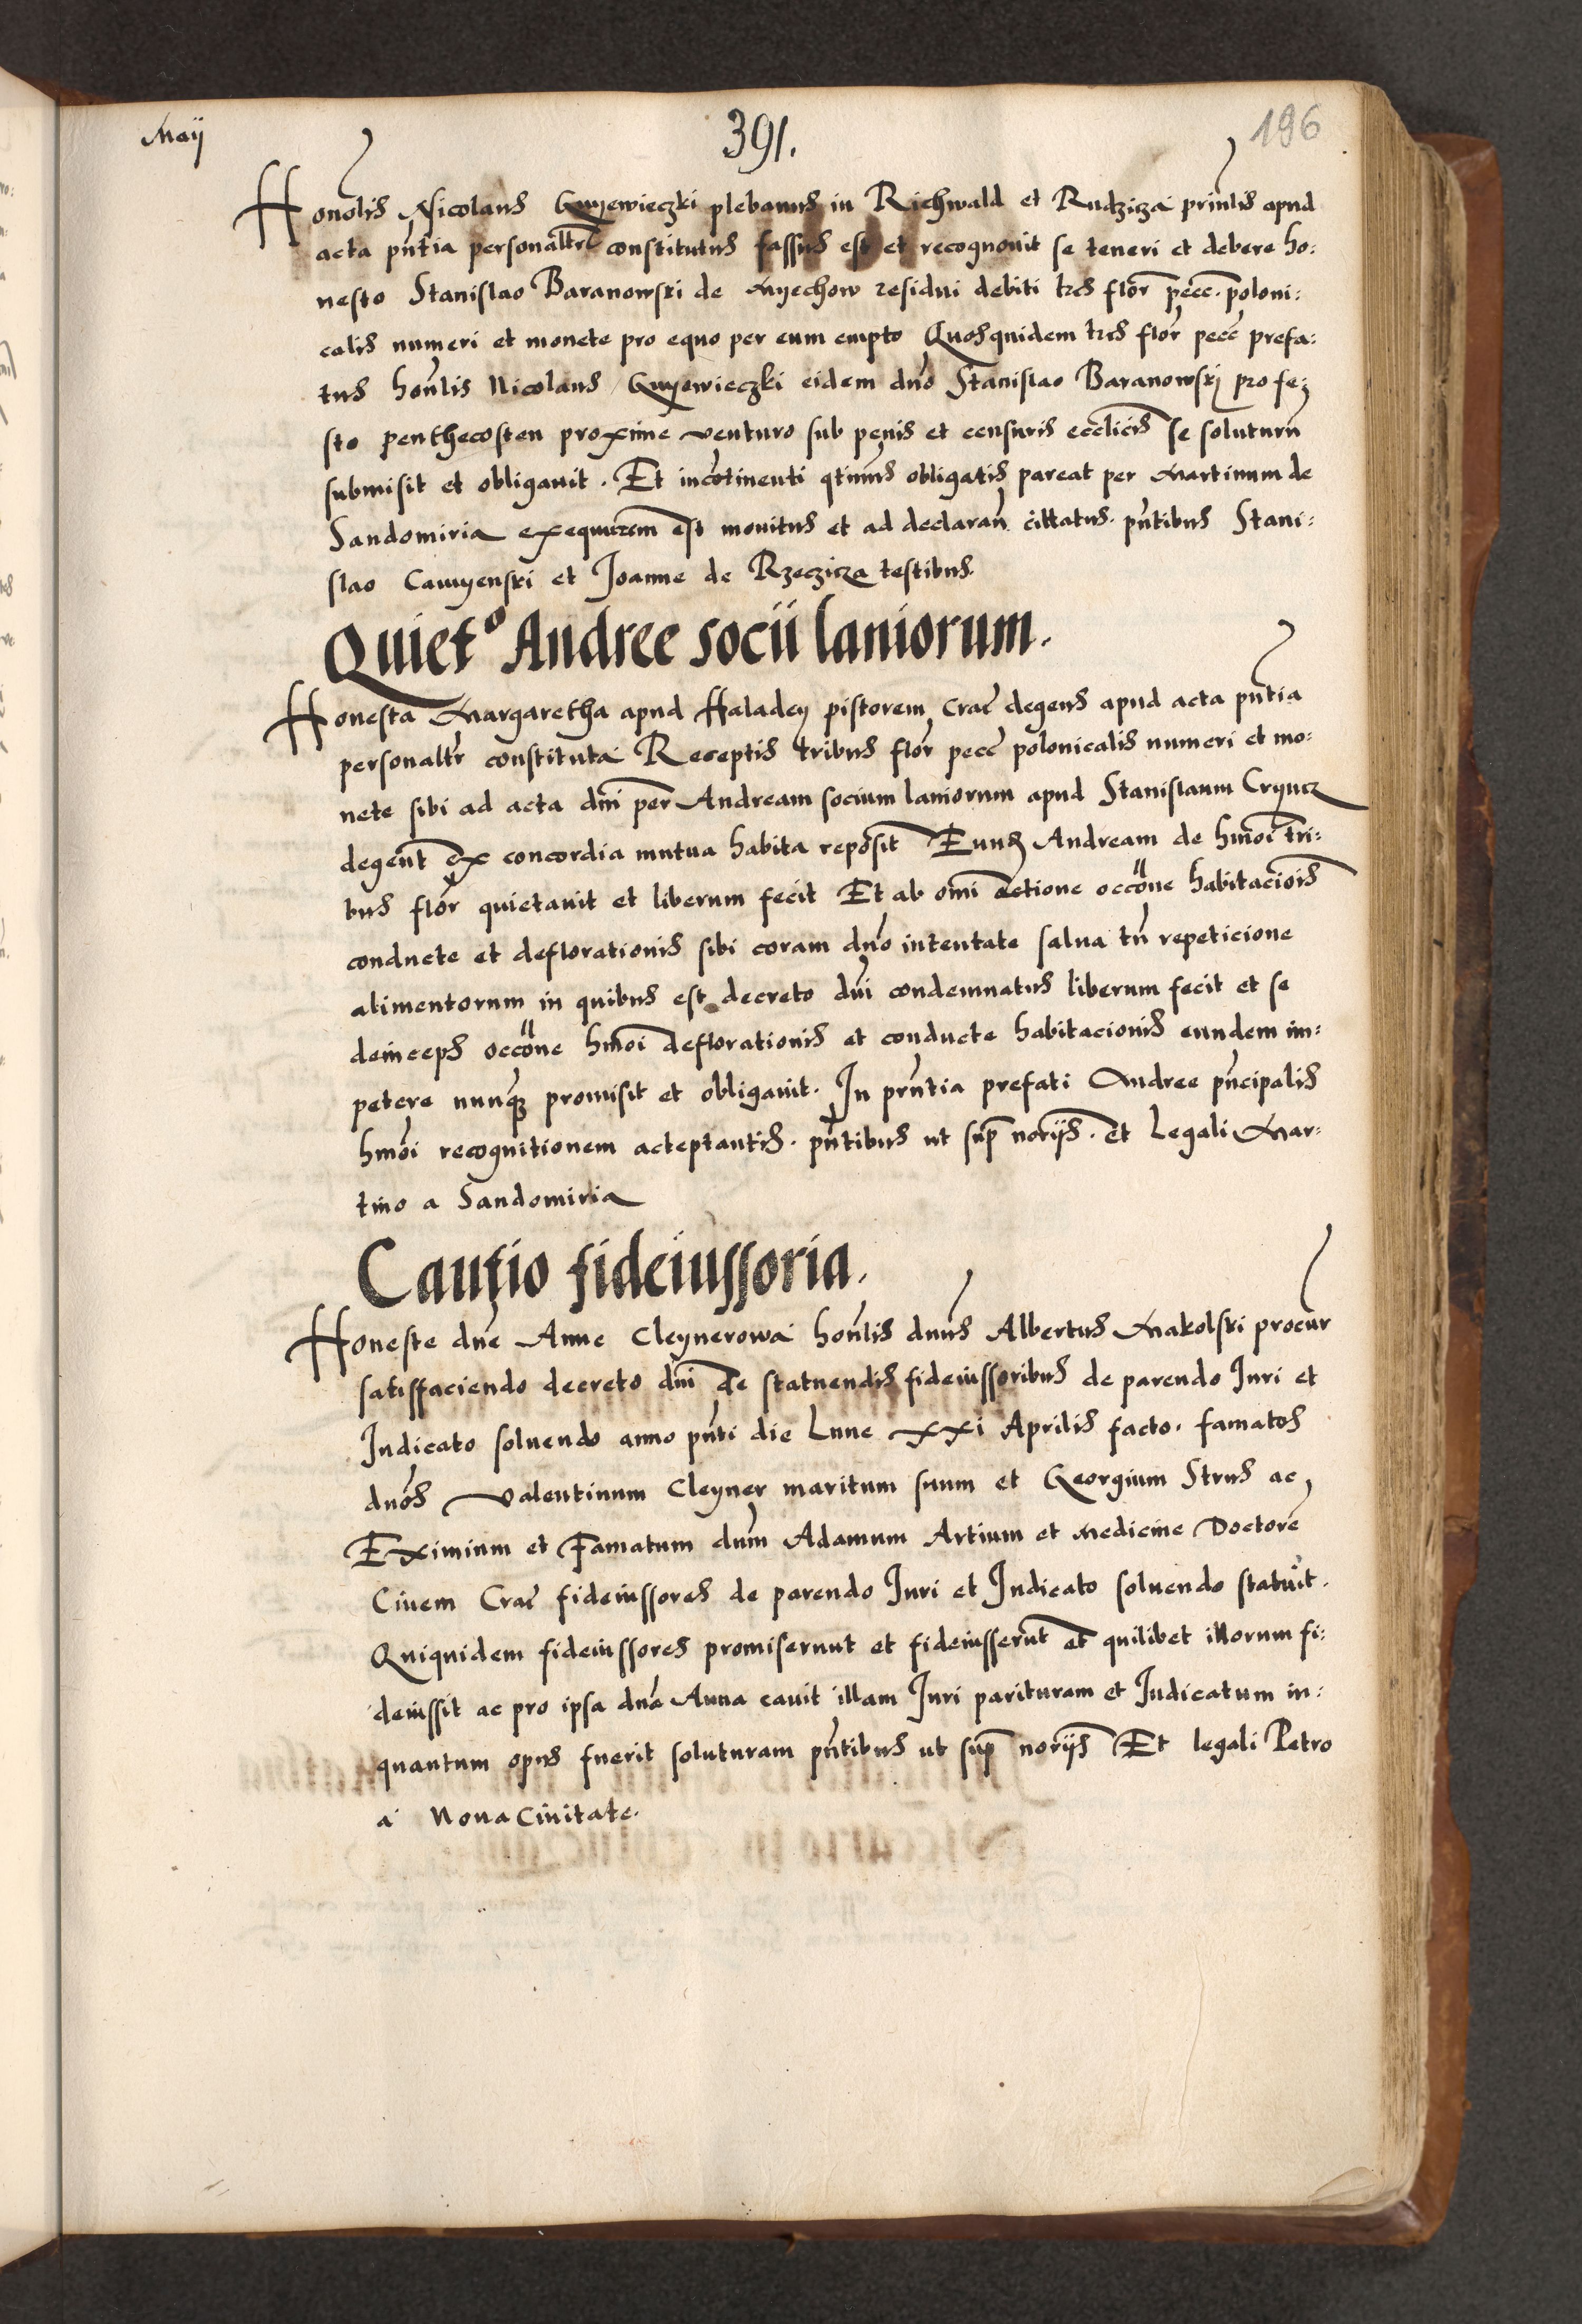 Maij
391.
196
Honolis Nicolaus Gnyewieczki plebanus in Richwald et Rudzicza prinlis apud
acta pntia personaltr constitutus fassus est et recognouit se teneri et debere ho:
nesto Stanislao Baranowski de Myechow residui debiti tres flor pecc. poloni:
calis numeri et monete pro equo per eum empto Quosquidem tres flor pecc prefa:
tus honlis Nicolaus Gnyewieczki eidem dno Stanislao Baranowskj pro fe:
sto penthecosten proxime venturo sub penis et censuris ecclicis se soluturu
submisit et obligauit. Et incotinenti qtinus obligatis pareat per Martinum de
Sandomiria exequutem est monitus et ad declaran cittatus. pntibus Stani:
slao Camyenski et Joanne de Rzeczicza testibus.
Quieto Andree socii laniorum.
Honesta Margaretha apud Haladey pistorem Crac degens apud acta pntia
personaltr constituta Receptis tribus flor pecc polonicalis numeri et mo:
nete sibi ad acta dni per Andream socium laniorum apud Stanislaum Cryucz
degent ex concordia mutua habita reposit Eund Andream de hmoi tri:
bus flor quietauit et liberum fecit Et ab omi actione occone habitaciois
conducte et deflorationis sibi coram dno intentate salua tn repeticione
alimentorum in quibus est decreto dni condemnatus liberum fecit et se
deinceps occone hmoi deflorationis et conducte habitacionis eundem im:
petere nunq promisit et obligauit. In prntia prefati Andree pncipalis
hmoi recognitionem acteptantis. pntibus ut sup norijs. et Legali Mar:
tino a Sandomiria
Cautio fideiussoria.
Honeste dne Anne Cleynerowa honlis dnus Albertus Makolski procur
satisfaciendo decreto dni de statuendis fideiussoribus de parendo Juri et
Judicato soluendo anno pnti die Lune xxi Aprilis facto. famatos
dnos Valentinum Cleyner maritum suum et Georgium Strus ac
Eximium et Famatum dum Adamum Artium et Medicine Doctore
Ciuem Crac fideiussores de parendo Juri et Judicato soluendo statuit.
Quiquidem fideiussores promiserunt et fideiusserut et quilibet illorum fi:
deiussit ac pro ipsa dna Anna cauit illam Juri parituram et Judicatum in:
quantum opus fuerit soluturam pntibus ut sup norijs Et legali Petro
a Noua Ciuitate.